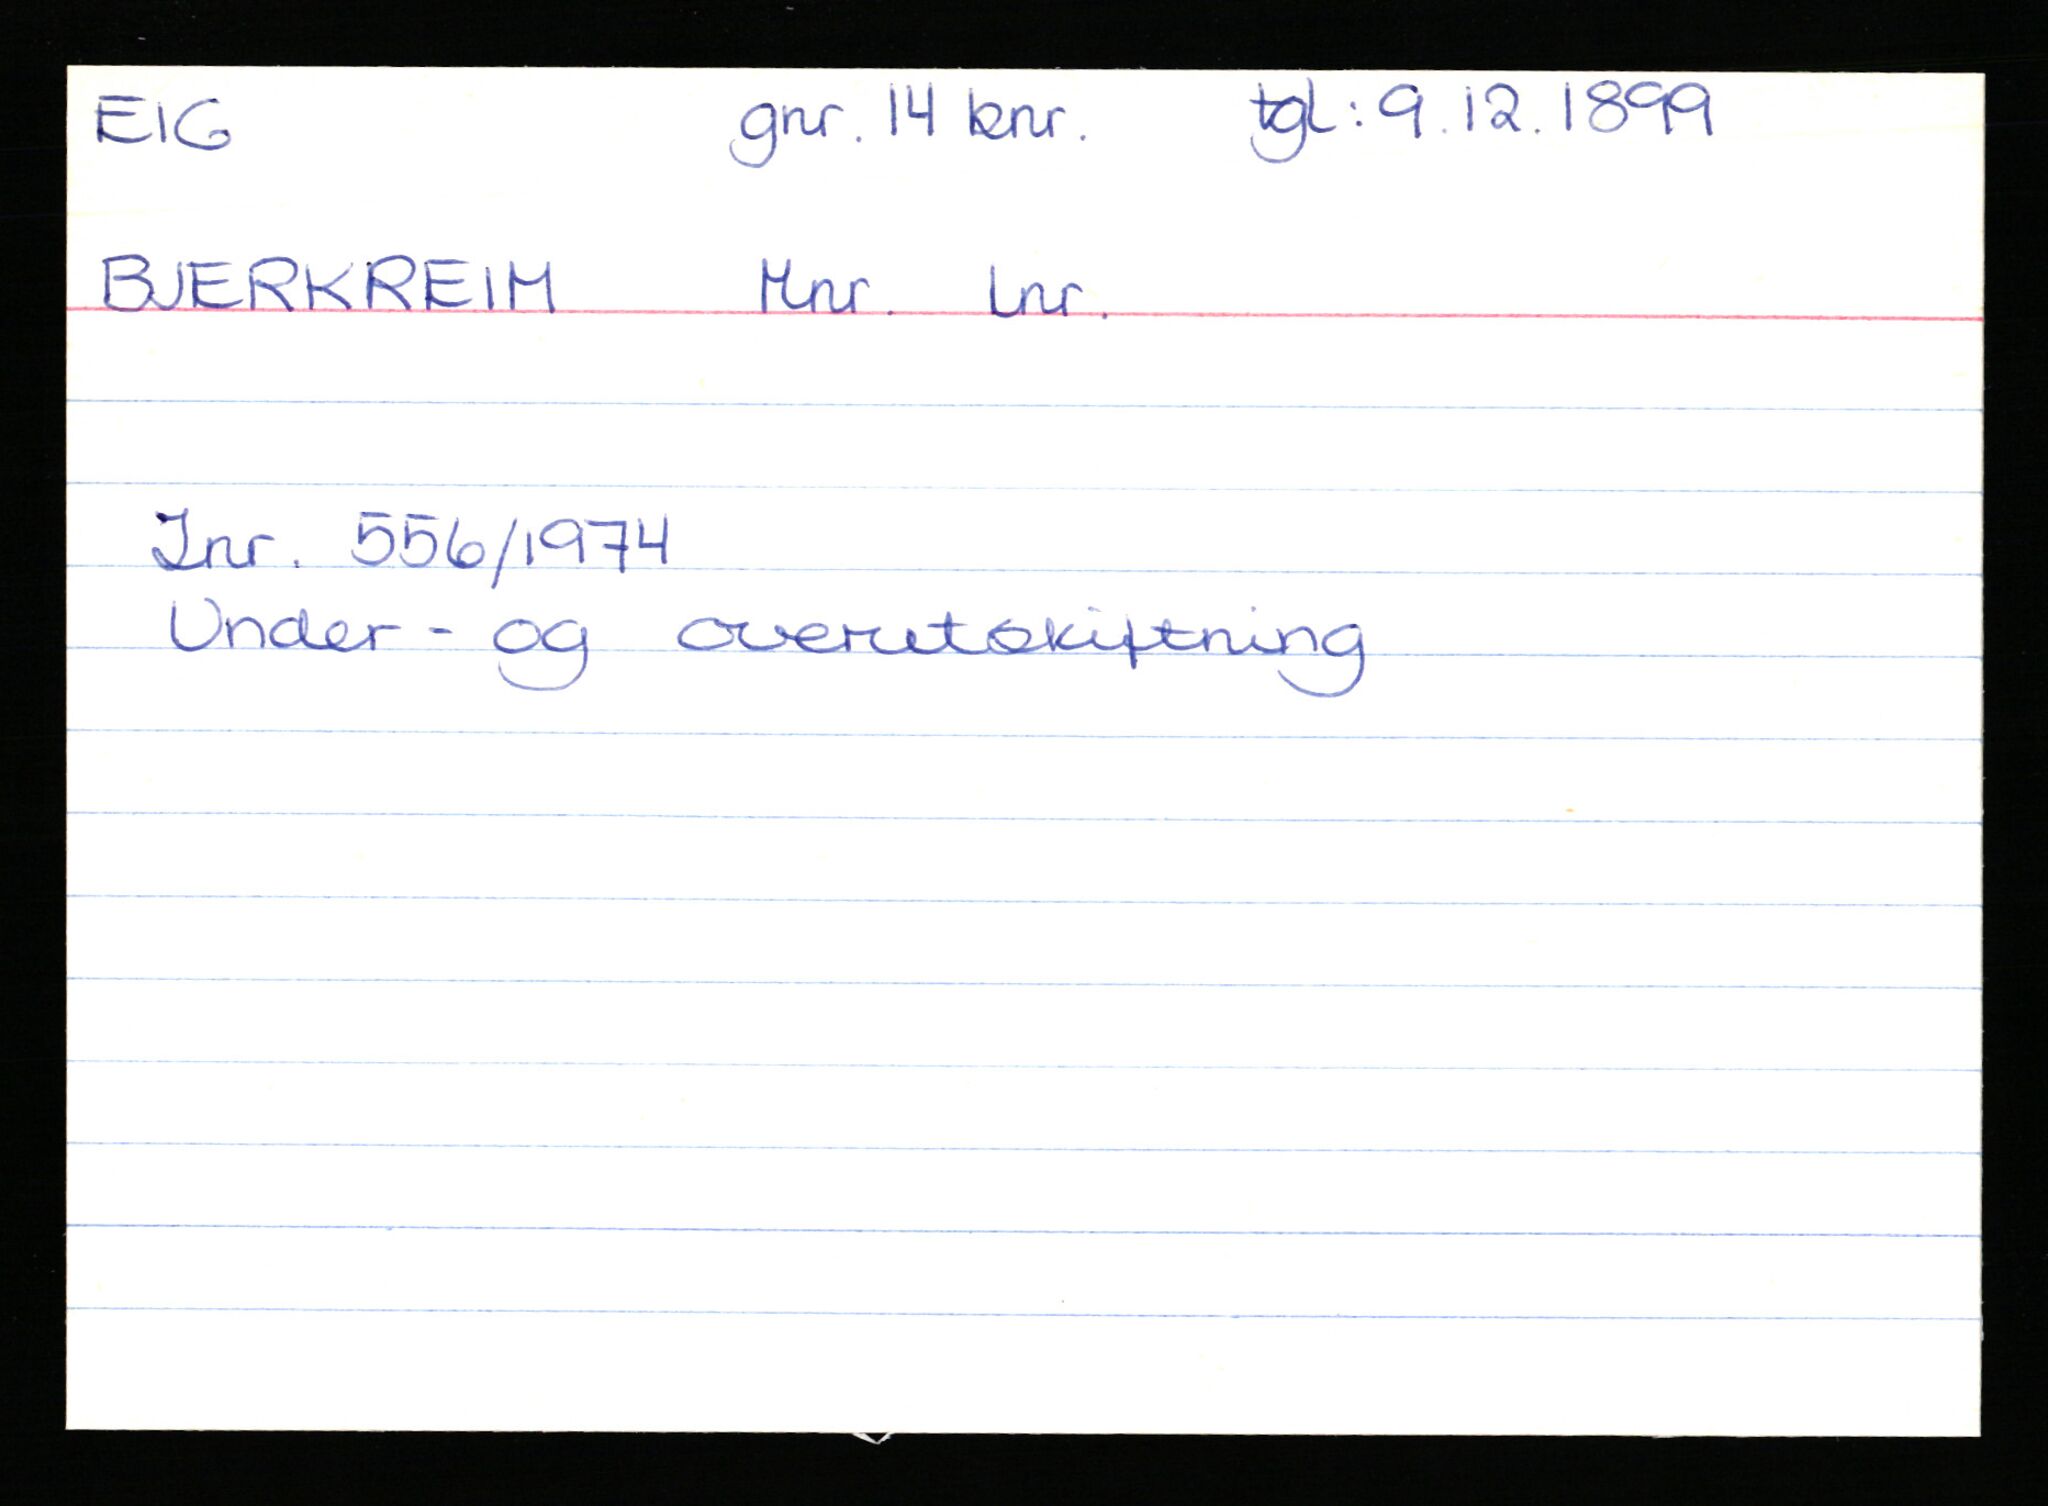 EIG gnr. 14 bnr. tgl: 9.12.1899
BJERKREIM Mnr. Lnr.
Jnr. 556/1974
Under- og overutskiftning